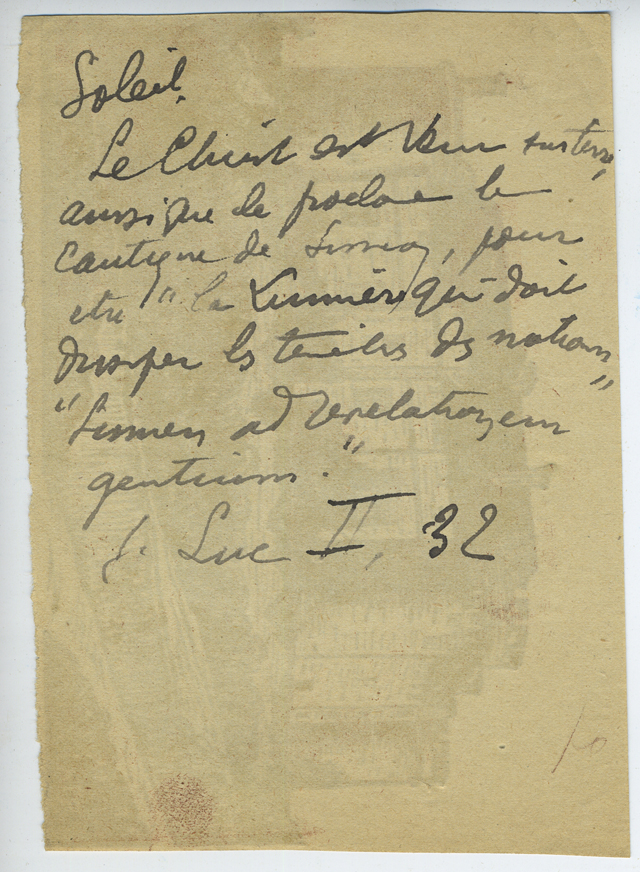 Soleil.
Le Christ est venu sur terre,
ainsi que le proclame le
Cantique de Simeon, pour
etre "la Lumière qui doit
dissiper les tenèbres des nations"
"Lumen ad revelationem
gentium."
S. Luc II, 32